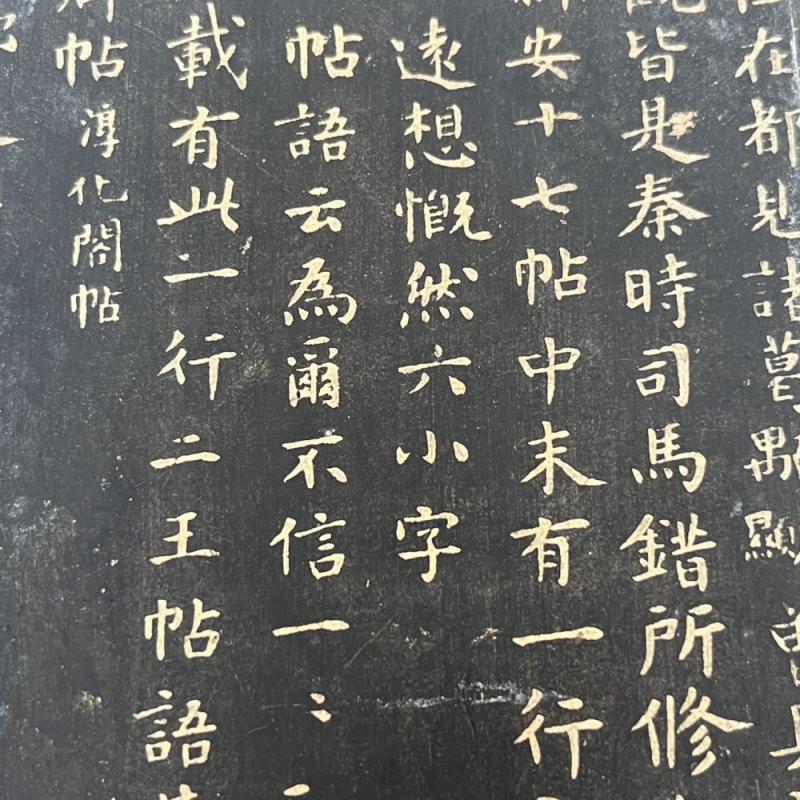 在都見諸葛顒顯曾具
皆是秦時司馬錯所修
安十七帖中末有一行
遠想慨然六小字
帖語云為爾不信一〻
載有此二行二王帖語
帖淳化閣帖